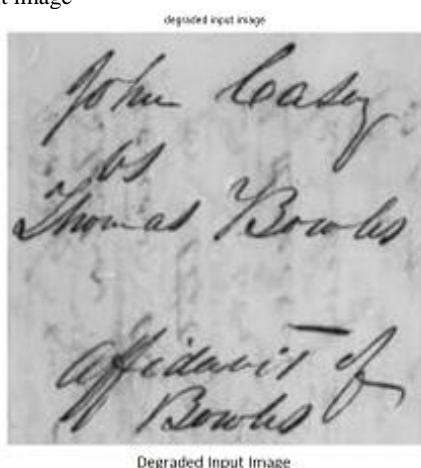 t image
degraded input image
John Casey
vs
Thomas Bowles
Affidavit of
Bowles
Degraded Input Image